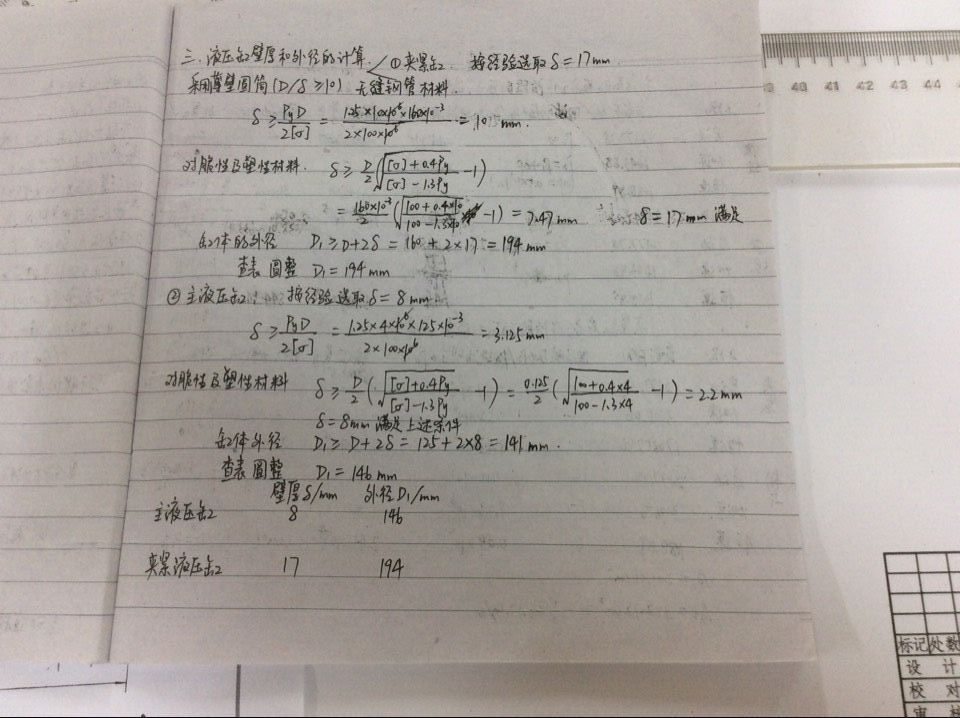 三、液压缸壁厚和外径的计算. ①夹紧缸, 按经验选取 δ=17mm
采用薄壁圆筒(D/δ≥10) 无缝钢管材料.
δ≥PyD/2[σ] = 1.25×10×10⁶×160×10⁻³/2×100×10⁶ = 10 mm.
对脆性及塑性材料. δ≥D/2(√([σ]+0.4Py/[σ]-1.3Py) -1)
= 160×10⁻³/2(√(100+0.4×10/100-1.3×10) -1) = 7.47mm ∴ δ=17mm 满足
缸体的外径 D₁≥D+2δ = 160+2×17 = 194mm
查表圆整 D₁=194mm
②主液压缸: 按经验选取 δ=8mm.
δ≥PyD/2[σ] = 1.25×4×10⁶×125×10⁻³/2×100×10⁶ = 3.125mm
对脆性及塑性材料 δ≥D/2(√([σ]+0.4Py/[σ]-1.3Py) -1) = 0.125/2(√(100+0.4×4/100-1.3×4) -1) = 2.2mm
δ=8mm 满足上述条件
缸体外径 D₁≥D+2δ = 125+2×8 = 141mm.
查表圆整 D₁=146mm
壁厚δ/mm 外径D₁/mm
主液压缸 8 146
夹紧液压缸 17 194
40 41 42 43 44
标记 处数
设计
校对
审核